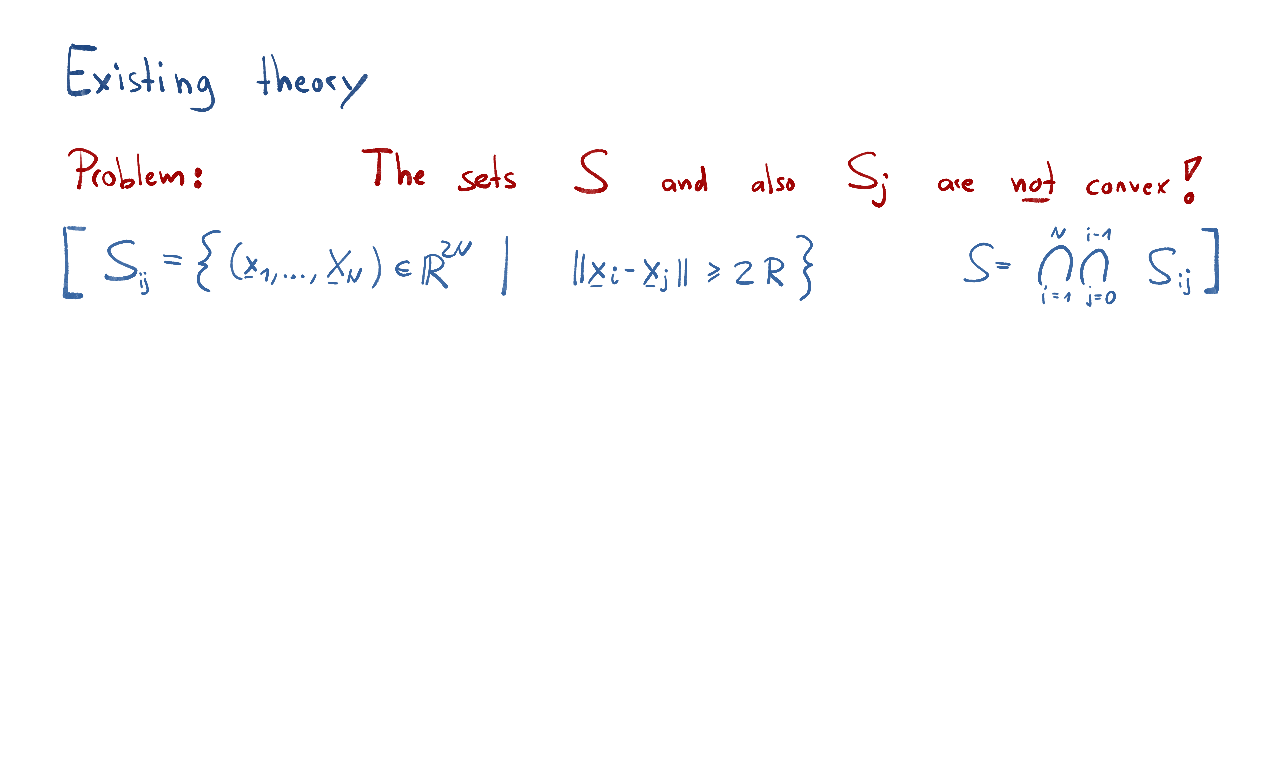 Existing theory
Problem: The sets S and also Sj are not convex!
[ S_ij = { (x_1, ..., x_N) ∈ ℝ^2N | ||x_i - x_j|| ⩾ 2R } S = ⋂_{i=1}^{N} ⋂_{j=0}^{i-1} S_ij ]